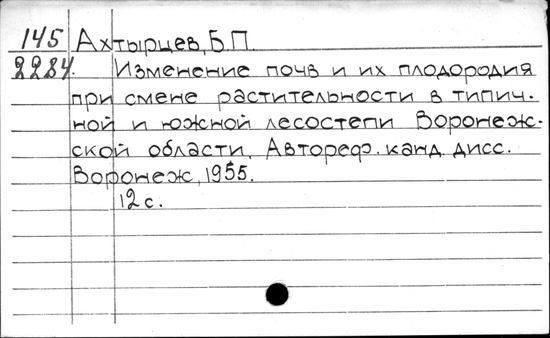 145 Ахтырцев, Б.П.
2284. Изменение почв и их плодородия
при смене растительности в типич-
ной и южной лесостепи Воронеж-
ской области. Автореф. канд. дисс.
Воронеж, 1955.
12 с.